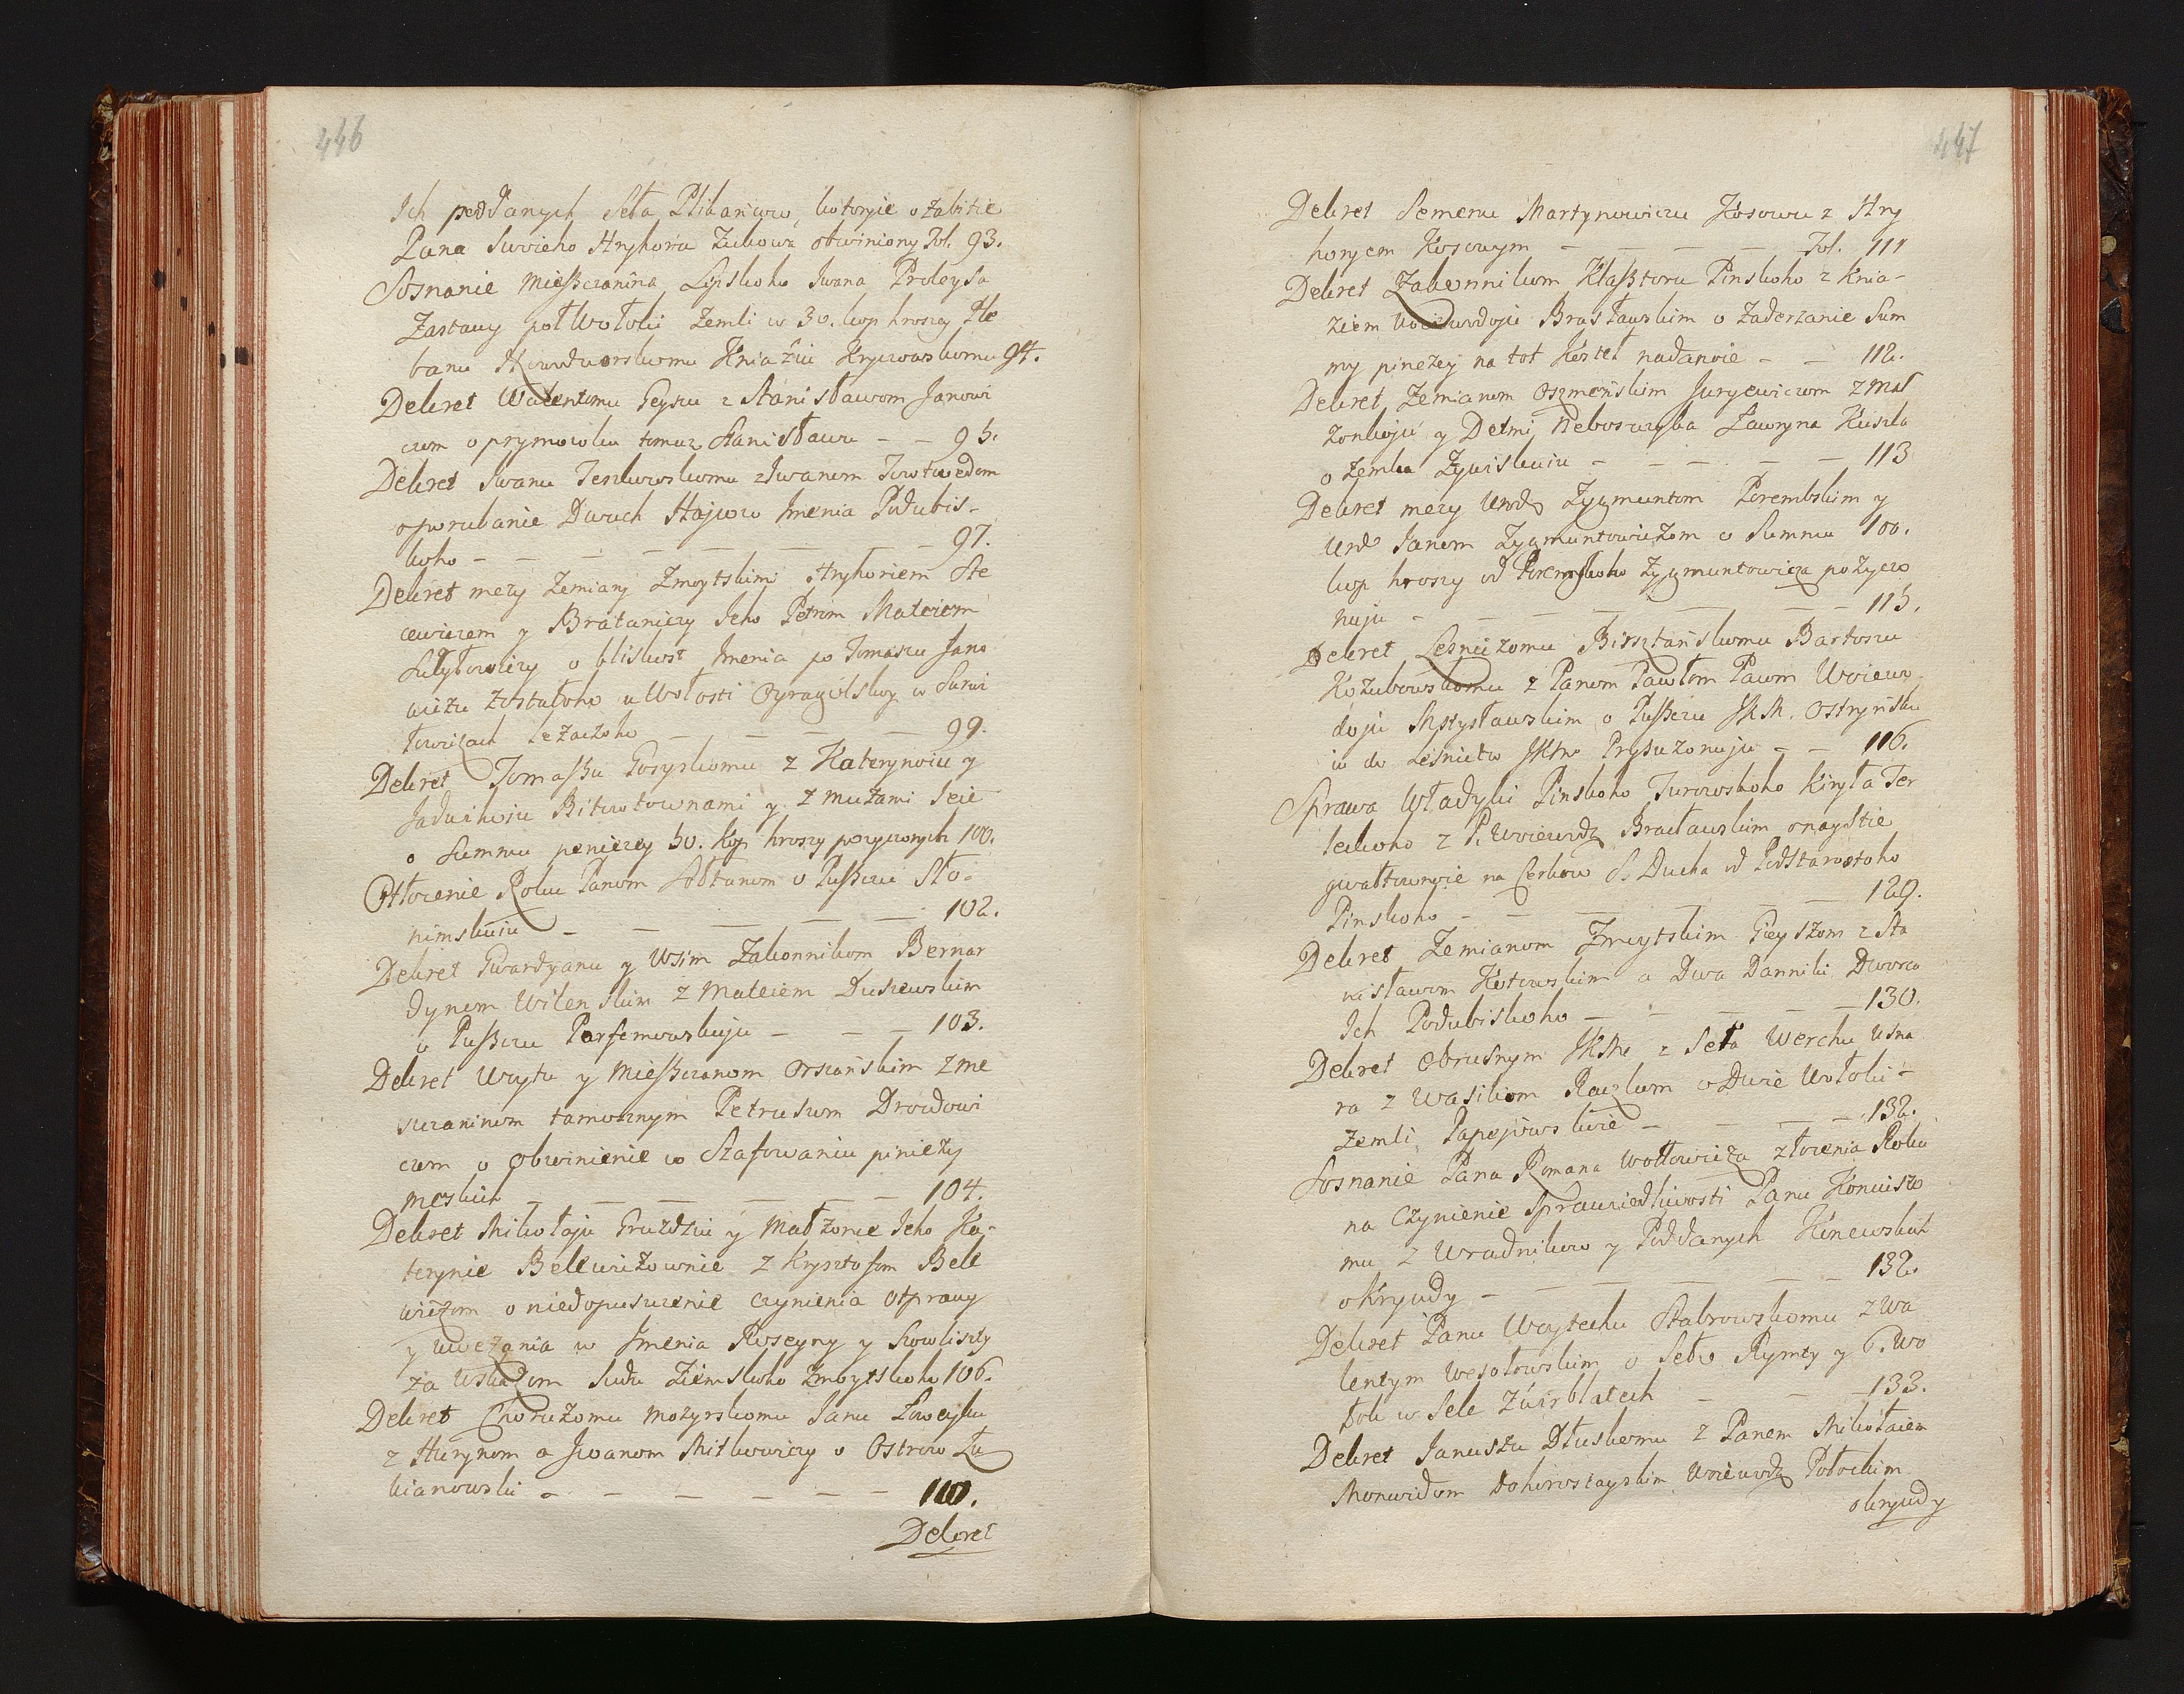 446
Ich poddanych Seła Plikańcow, kotoryie o zabitie
Pana Swoieho Hryhoria Zukowa obwiniony Fol. 93.
Sosnanie Mießczanina Lipskoho Iwana Proleysa
Zastawy poł Wołoki Zemli w 30. kop hroszey Ple
banu Nowodworskomu Kniaziu Kryczowskomu 94.
Dekret Walentomu Geyszu z Stanisławom Janowi
czom o prymowku tomuz Stanisławu - - 95.
Dekret Iwanu Teszkowskomu z Iwanom Towtwedom
o porubanie Dwuch Hajow Imenia Podubis-
koho - - - - - - - 97.
Dekret mezy Zemiany Zmoytskimi Hryhoriem Ste
cewiczem y Brataniczy Jeho Petrom Mateiem
Sutyłowiczy o bliskost Imenia po Tomaszu Jano
wiżu Zostałoho u Wołosti Oyragolskoy w Surwi
łowiżach Leżaczoho - - - - 99.
Dekret Tomaßu Gosyskomu z Katerynoiu y
Jadwihoiu Bitowtownami y z mużami Jeie
o Summu penieżey 50. kop hroszy pozyczonych 100.
Otłożenie Roku Panom Sołtanom o Pußczu Sło-
nimskuiu - - - - - 102.
Dekret Gwardyanu y Wsim Zakonnikom Bernar
dynom Wilenskim z Mateiem Duszewskim
o Pußczu Parfemowskuju - - - 103.
Dekret Woytu y Mießczanom Orszańskim z me
szczaninom tamosznym Petrusom Drozdowi
czom o obwinienie w Szafowaniu pinieży
meskich - - - - - 104.
Dekret Mikołaju Gruzdziu y Małżonce Jeho Ka-
terynie Bellewiżownie z Krysztofom Bele
wiżom o niedopuszczenie czynienia Otprawy
y uwezania w Imenia Roseyny y Kowliszky
za Wskazom Sudu Ziemskoho Zmoytskoho 106.
Dekret Choruzomu Mozyrskomu Janu Łoweyku
z Hurynom a Iwanom Mitkowiczy o Ostrow Łu
kianowski - - - - - - 110.
Dekret
447
Dekret Semenu Martynowiczu Kosowu z Hry
horyem Kosowym - - - Fol. 111
Dekret Zakonnikom Klaßtoru Pinskoho z Knia-
ziem Woiewodoju Brasławskim o Zaderzanie Sum
my pinezey na tot Kosteł nadanoie - - 112.
Dekret Zemianom Oszmeńskim Juryewiczom z Mał
żonkoju y Detmi Neboszczyka Ławryna Kuszla
o Zemlu Zywiskuiu - - - - - 113
Dekret mezy Urod Zygmuntom Porembskim y
Urod Janom Zygmuntowiżom o Summu 100.
kop hroszy od Porembskoho Zygmuntowiża pozyczo
nuju - - - - - - 115.
Dekret Leśniżomu Birsztańskomu Bartoszu
Kozubowskomu z Panom Pawłom Pacom Woiewo
doju Mstysławskim o Pußczu JKM. Ostryńsku
iu do Leśnictw JKM Prysużonuju - - 116.
Sprawa Władyki Pinskoho Turowskoho Kiryła Ter
leckoho z P. Woiewodz Bracławskim o nayście
gwałtownoie na Cerkow S. Ducha od Podstarostoho
Pinskoho - - - - - - 129.
Dekret Zemianom Zmoytskim Gieyszom z Sta
nisławom Kotowskim o Dwa Danniki Dworca
Ich Podubiskoho - - - - - 130.
Dekret Obrusnym JKM z Seła Werchu Usna
ra z Wasiliom Raczkom o Dwie Wołoki -
Zemli, Papejowskie - - - - 132.
Sosnanie Pana Romana Wołłowiża złożenia Roku
na Czynienie Sprawiedliwosti Panu Koniuszo
mu z Uradnikow y Poddanych Kinewskich
o Krywdy - - - - - - 132.
Dekret Panu Woytechu Stabrowskomu z Wa
lentym Wesołowskim o Seło Rymty y 6. Wo
łok w Sele Zwirblatech - - - 133.
Dekret Januszu Dłuskomu z Panem Mikołaiem
Monwidom Dohorostayskim Woiewodz Połockim
o krywdy